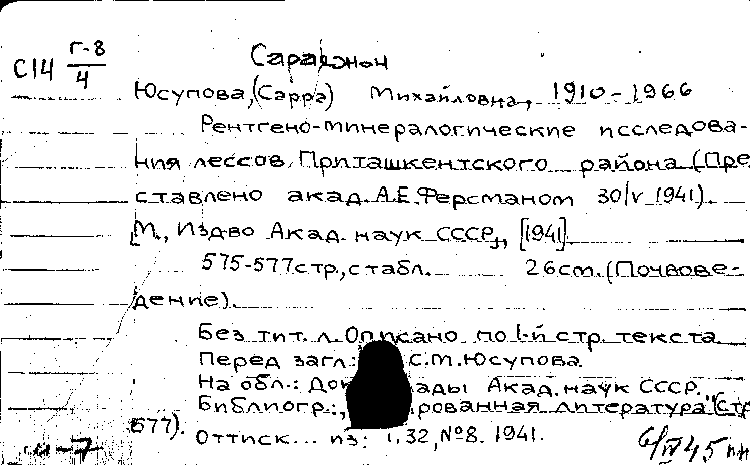 С14 Г-8/4
Сараджон
Юсупова, (Сарра) Михайловна, 1910-1966
Рентгено-минералогические исследова-
ния лессов Приташкентского района (Пре
ставлено акад. А.Е.Ферсманом 30/V 1941).
[М., Изд-во Акад. наук СССР, [1941].
575-577 стр., с табл. 26 см. (Почвове-
дение).
Без тит. л. Описано по 1-й стр. текста
Перед загл.: С.М.Юсупова.
На обл.: Док ады Акад. наук СССР.
Библиогр.: рованная литература" (стр
577).
Оттиск... из: т.32, №8. 1941.
6/IV 45